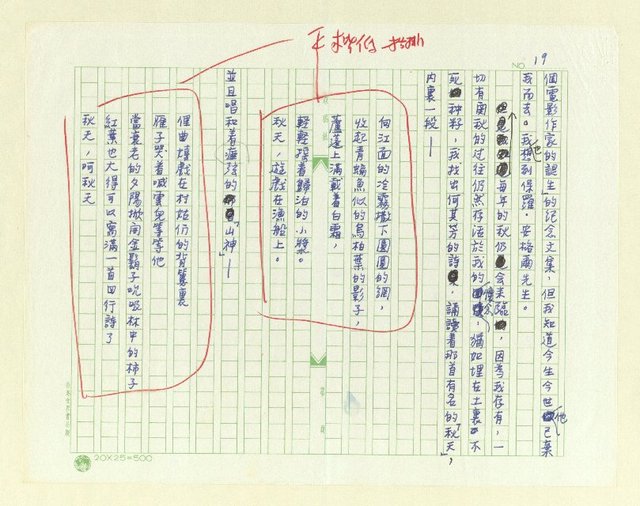 NO. 19
個電影作家的誕生」的紀念文集,但我知道今生今世他已棄
我而去。我想到保羅.安格爾先生。
每年的秋仍會來臨,因為我存有,一
切有關秋的过往仍然存活於我的懷念,猶如埋在土裏不
死神籽,我找出何其芳的詩,誦讀着那首有名的「秋天」,
內裏一段—
向江面的冷霧撒下圓圓的網,
收起青鯿魚似的烏柏葉的影子,
蘆蓬上滿載着白霜,
輕輕搖着歸泊的小槳。
秋天,遊戲在漁船上。
並且唱和着瘂弦的「山神」—
俚曲嬉戲在村姑們的背簍裏
雁子哭着喊雲兒等等他
當衰老的夕陽掀開金鬍子吮吸林中的柿子
紅葉也大得可以寫滿一首四行詩了
秋天,呵秋天
20X25=500